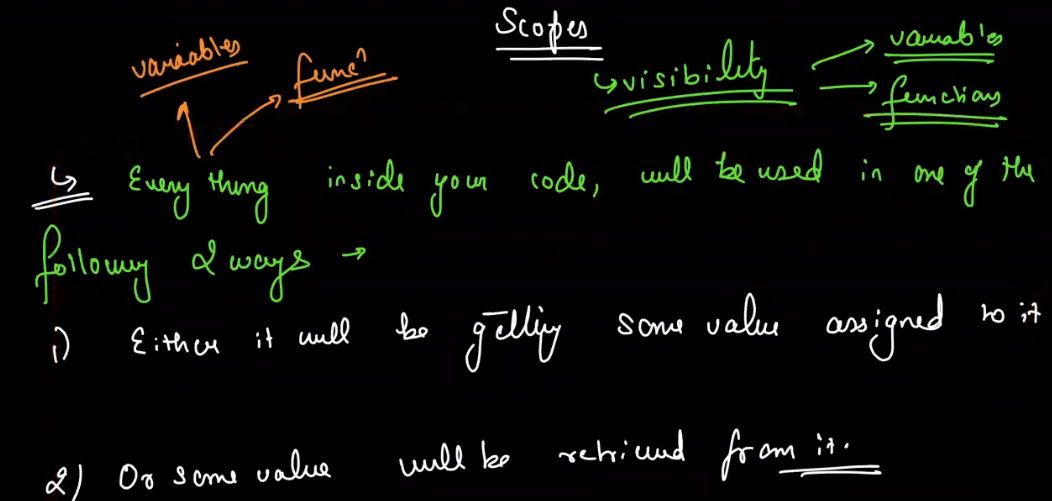 Scopes
variables
funcn
↳ visibility → variables
→ functions
↳ Every thing inside your code, will be used in one of the
following 2 ways →
1) Either it will be getting some value assigned to it
2) Or some value will be retrieved from it.